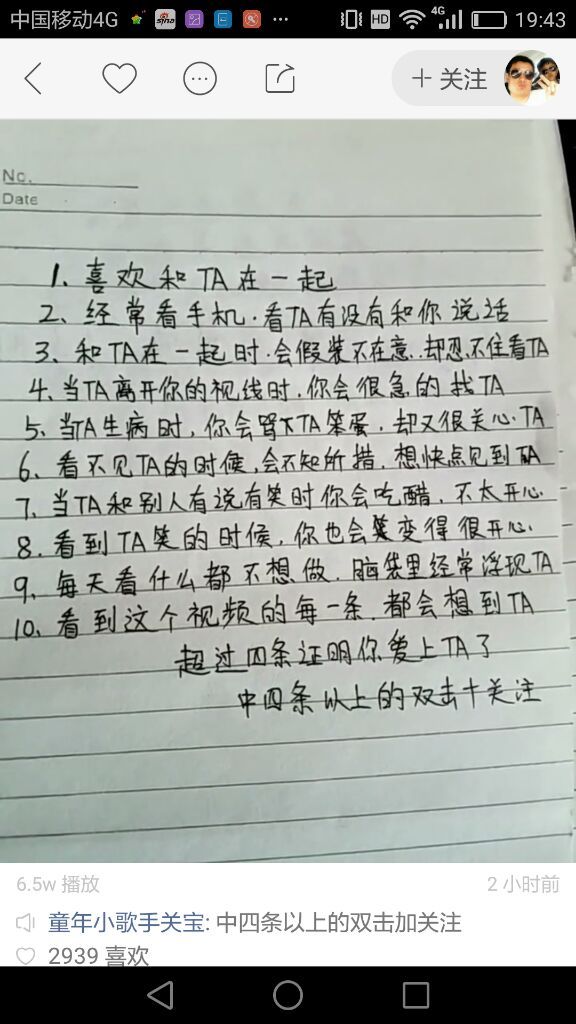 中国移动4G
HD
4G
19:43
关注
No.
Date
1. 喜欢和TA在一起
2、经常看手机.看TA有没有和你说话
3、和TA在一起时.会假装不在意..却忍不住看TA
4、当TA离开你的视线时.你会很急的找TA
5、当TA生病时,你会骂TA笨蛋.却又很关心.TA
6、看不见TA的时候,会不知所措.想快点见到TA
7、当TA和别人有说有笑时你会吃醋,不太开心.
8、看到TA笑的时候,你也会变得很开心.
9、每天看什么都不想做.脑袋里经常浮现TA
10、看到这个视频的每一条.都会想到TA
超过四条证明你爱上TA了
中四条以上的双击十关注
6.5w 播放
2 小时前
童年小歌手关宝: 中四条以上的双击加关注
2939 喜欢